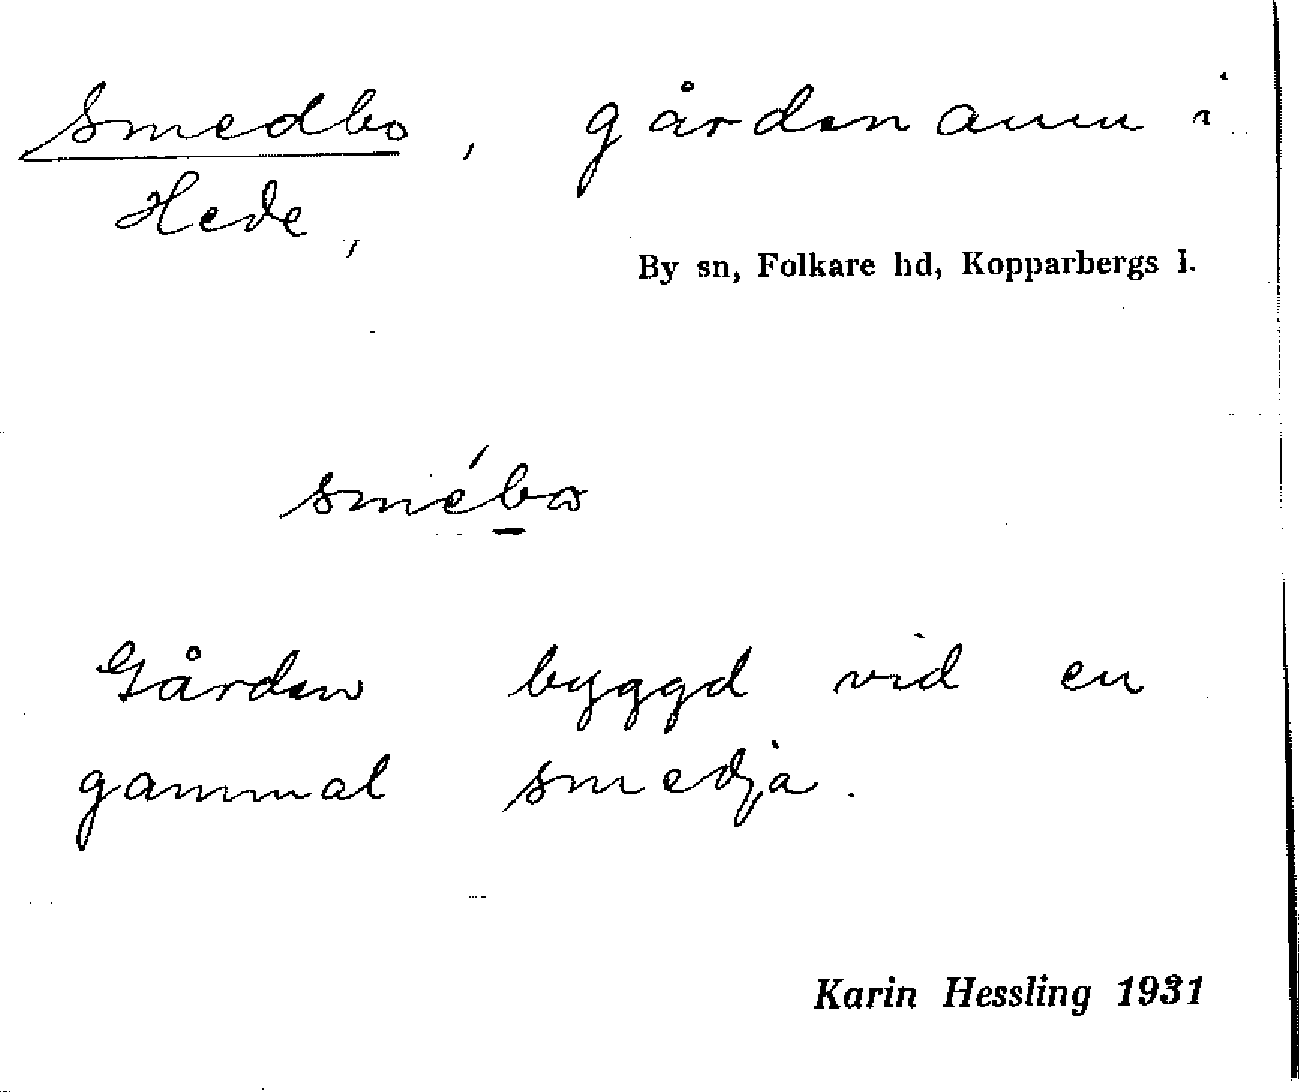 Smedbo, gårdsnamn i
Hede,
By sn, Folkare hd, Kopparbergs l.
smébo
Gården byggd vid en
gammal smedja.
Karin Hessling 1931